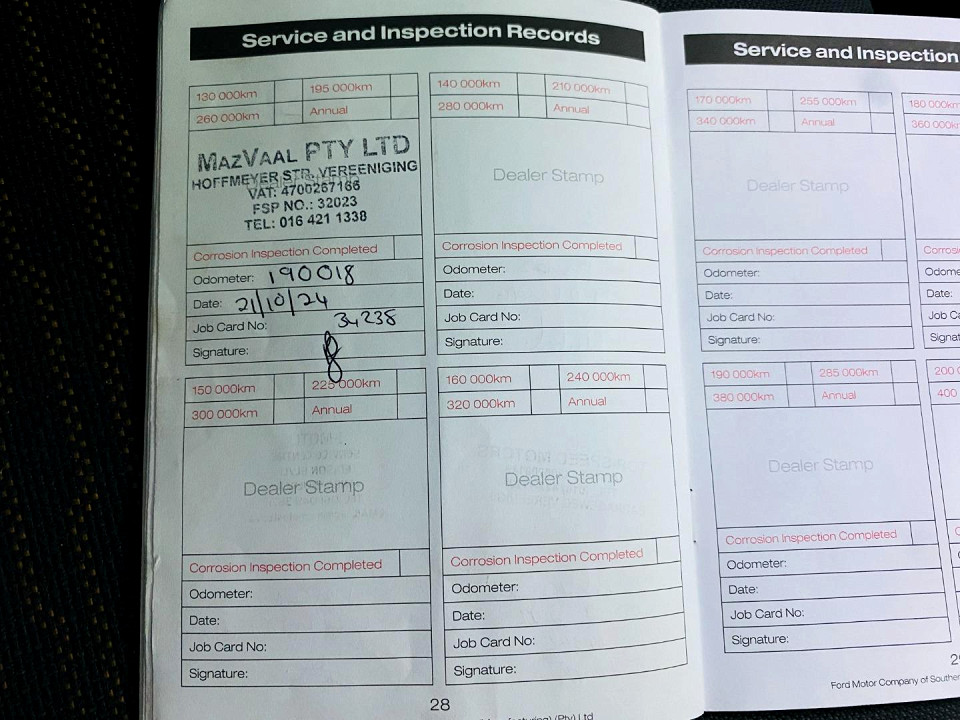 Service and Inspection Records
130 000km 195 000km
260 000km Annual
MAZVAAL PTY LTD
HOFFMEYER STR, VEREENIGING
VAT: 4700257166
FSP NO.: 32023
TEL: 016 421 1338
Corrosion Inspection Completed
Odometer: 190018
Date: 21/10/24
Job Card No: 34238
Signature:
140 000km 210 000km
280 000km Annual
Dealer Stamp
Corrosion Inspection Completed
Odometer:
Date:
Job Card No:
Signature:
150 000km 225 000km
300 000km Annual
Dealer Stamp
Corrosion Inspection Completed
Odometer:
Date:
Job Card No:
Signature:
160 000km 240 000km
320 000km Annual
Dealer Stamp
Corrosion Inspection Completed
Odometer:
Date:
Job Card No:
Signature:
28
(Pty) Ltd
Service and Inspection
170 000km 255 000km
340 000km Annual
Dealer Stamp
Corrosion Inspection Completed
Odometer:
Date:
Job Card No:
Signature:
180 000km
360 000k
Corrosi
Odome
Date:
Job Ca
Signat
190 000km 285 000km
380 000km Annual
Dealer Stamp
Corrosion Inspection Completed
Odometer:
Date:
Job Card No:
Signature:
200
400
Ford Motor Company of Southern